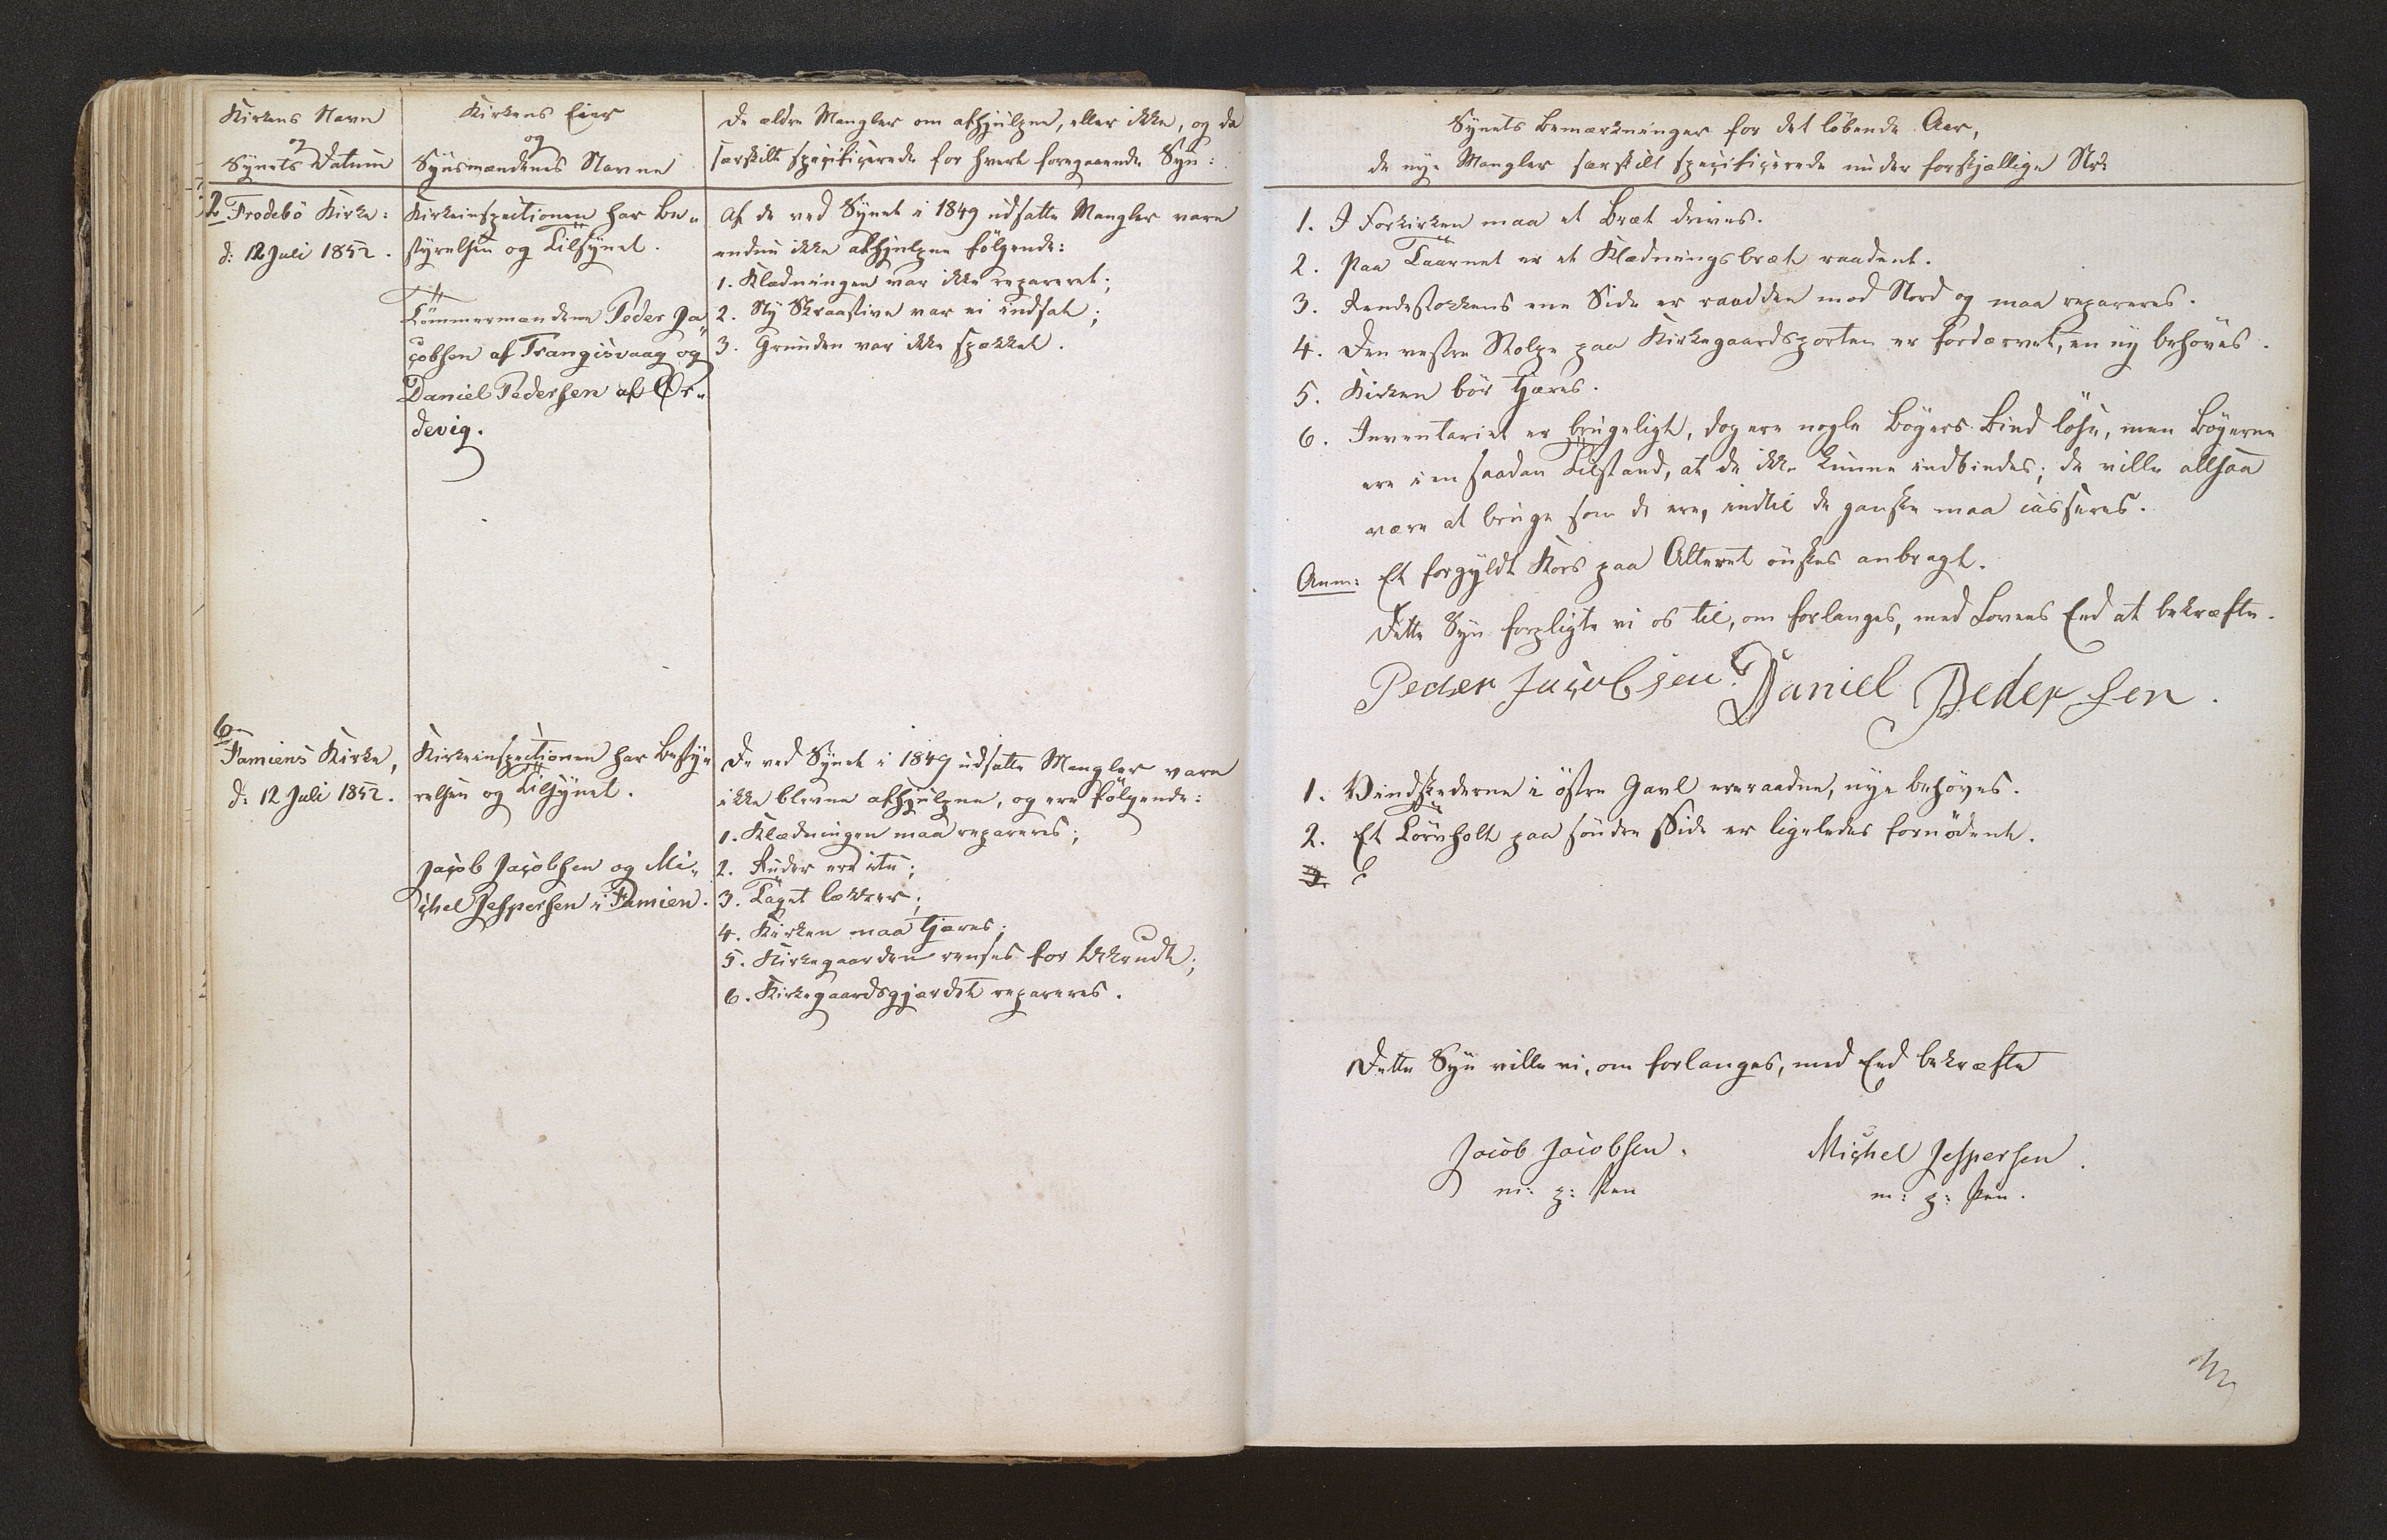 Kirkens Navn
og
Synets Datum
Kirkens Eier
og
Synsmændenes Navne
De ældre Mangler om afhjulpne, eller ikke, og da
særskilt specificerede for hvert foregaaende Syn:
2, Frodebö Kirke:
d: 12 Juli 1852.
Kirkeinspectionen har Be-
styrelsen og Tilsynet.
Tömmermændene Peder Ja-
cobsen af Trangisvaag og
Daniel Pedersen af Ør-
devig.
Af de ved Synet i 1849 udsatte Mangler vare
endnu ikke afhjulpne følgende:
1. Klædningen var ikke repareret;
2. Ny Skraastive var ei indsat;
3. Grunden var ikke spækket.
6
Famiens Kirke,
d: 12 Juli 1852.
Kirkeinspectionen har Besty-
relsen og Tilsynet.
Jacob Jacobsen og Mi-
chel Jespersen i Famien.
De ved Synet i 1849 udsatte Mangler vare
ikke blevne afhjulpne, og ere følgende:
1. Klædningen maa repareres;
2. Ruder ere itu;
3. Taget lækker;
4. Kirken maa tjæres;
5. Kirkegaarden renses for Ukrudt;
6. Kirkegaardsgjærdet repareres.
Synets Bemærkninger for det løbende Aar,
de nye Mangler særskilt specificerede under forskjællige Nr:
1. I Forkirken maa et Bræt drives.
2. Paa Taarnet er et Klædningsbræt raadent.
3. Rendestokkens ene Side er raadden mod Nord og maa repareres.
4. Den vestre Stolpe paa Kirkegaardsporten er fordærvet, en ny behöves.
5. Kirken bör tjæres.
6. Inventariet er brugeligt, dog ere nogle Bögers Bind löse, men Bögerne
ere i en saadan Tilstand, at de ikke kunne indbindes; de ville altsaa
være at bruge som de ere, indtil de ganske maa casseres.
Anm: Et forgyldt Kors paa Alteret önskes anbragt.
Dette Syn forpligte vi os til, om forlanges, med Lovens Eed at bekræfte.
Peder Jacobsen Daniel Pedersen.
1. Vindskederne i östre Gavl ere raadne, nye behöves.
2. Et Törvholt paa söndre Side er ligeledes fornödent.
3.
Dette Syn ville vi, om forlanges, med Eed bekræfte
Jacob Jacobsen. Michel Jespersen.
m: p: Pen m: p: Pen.